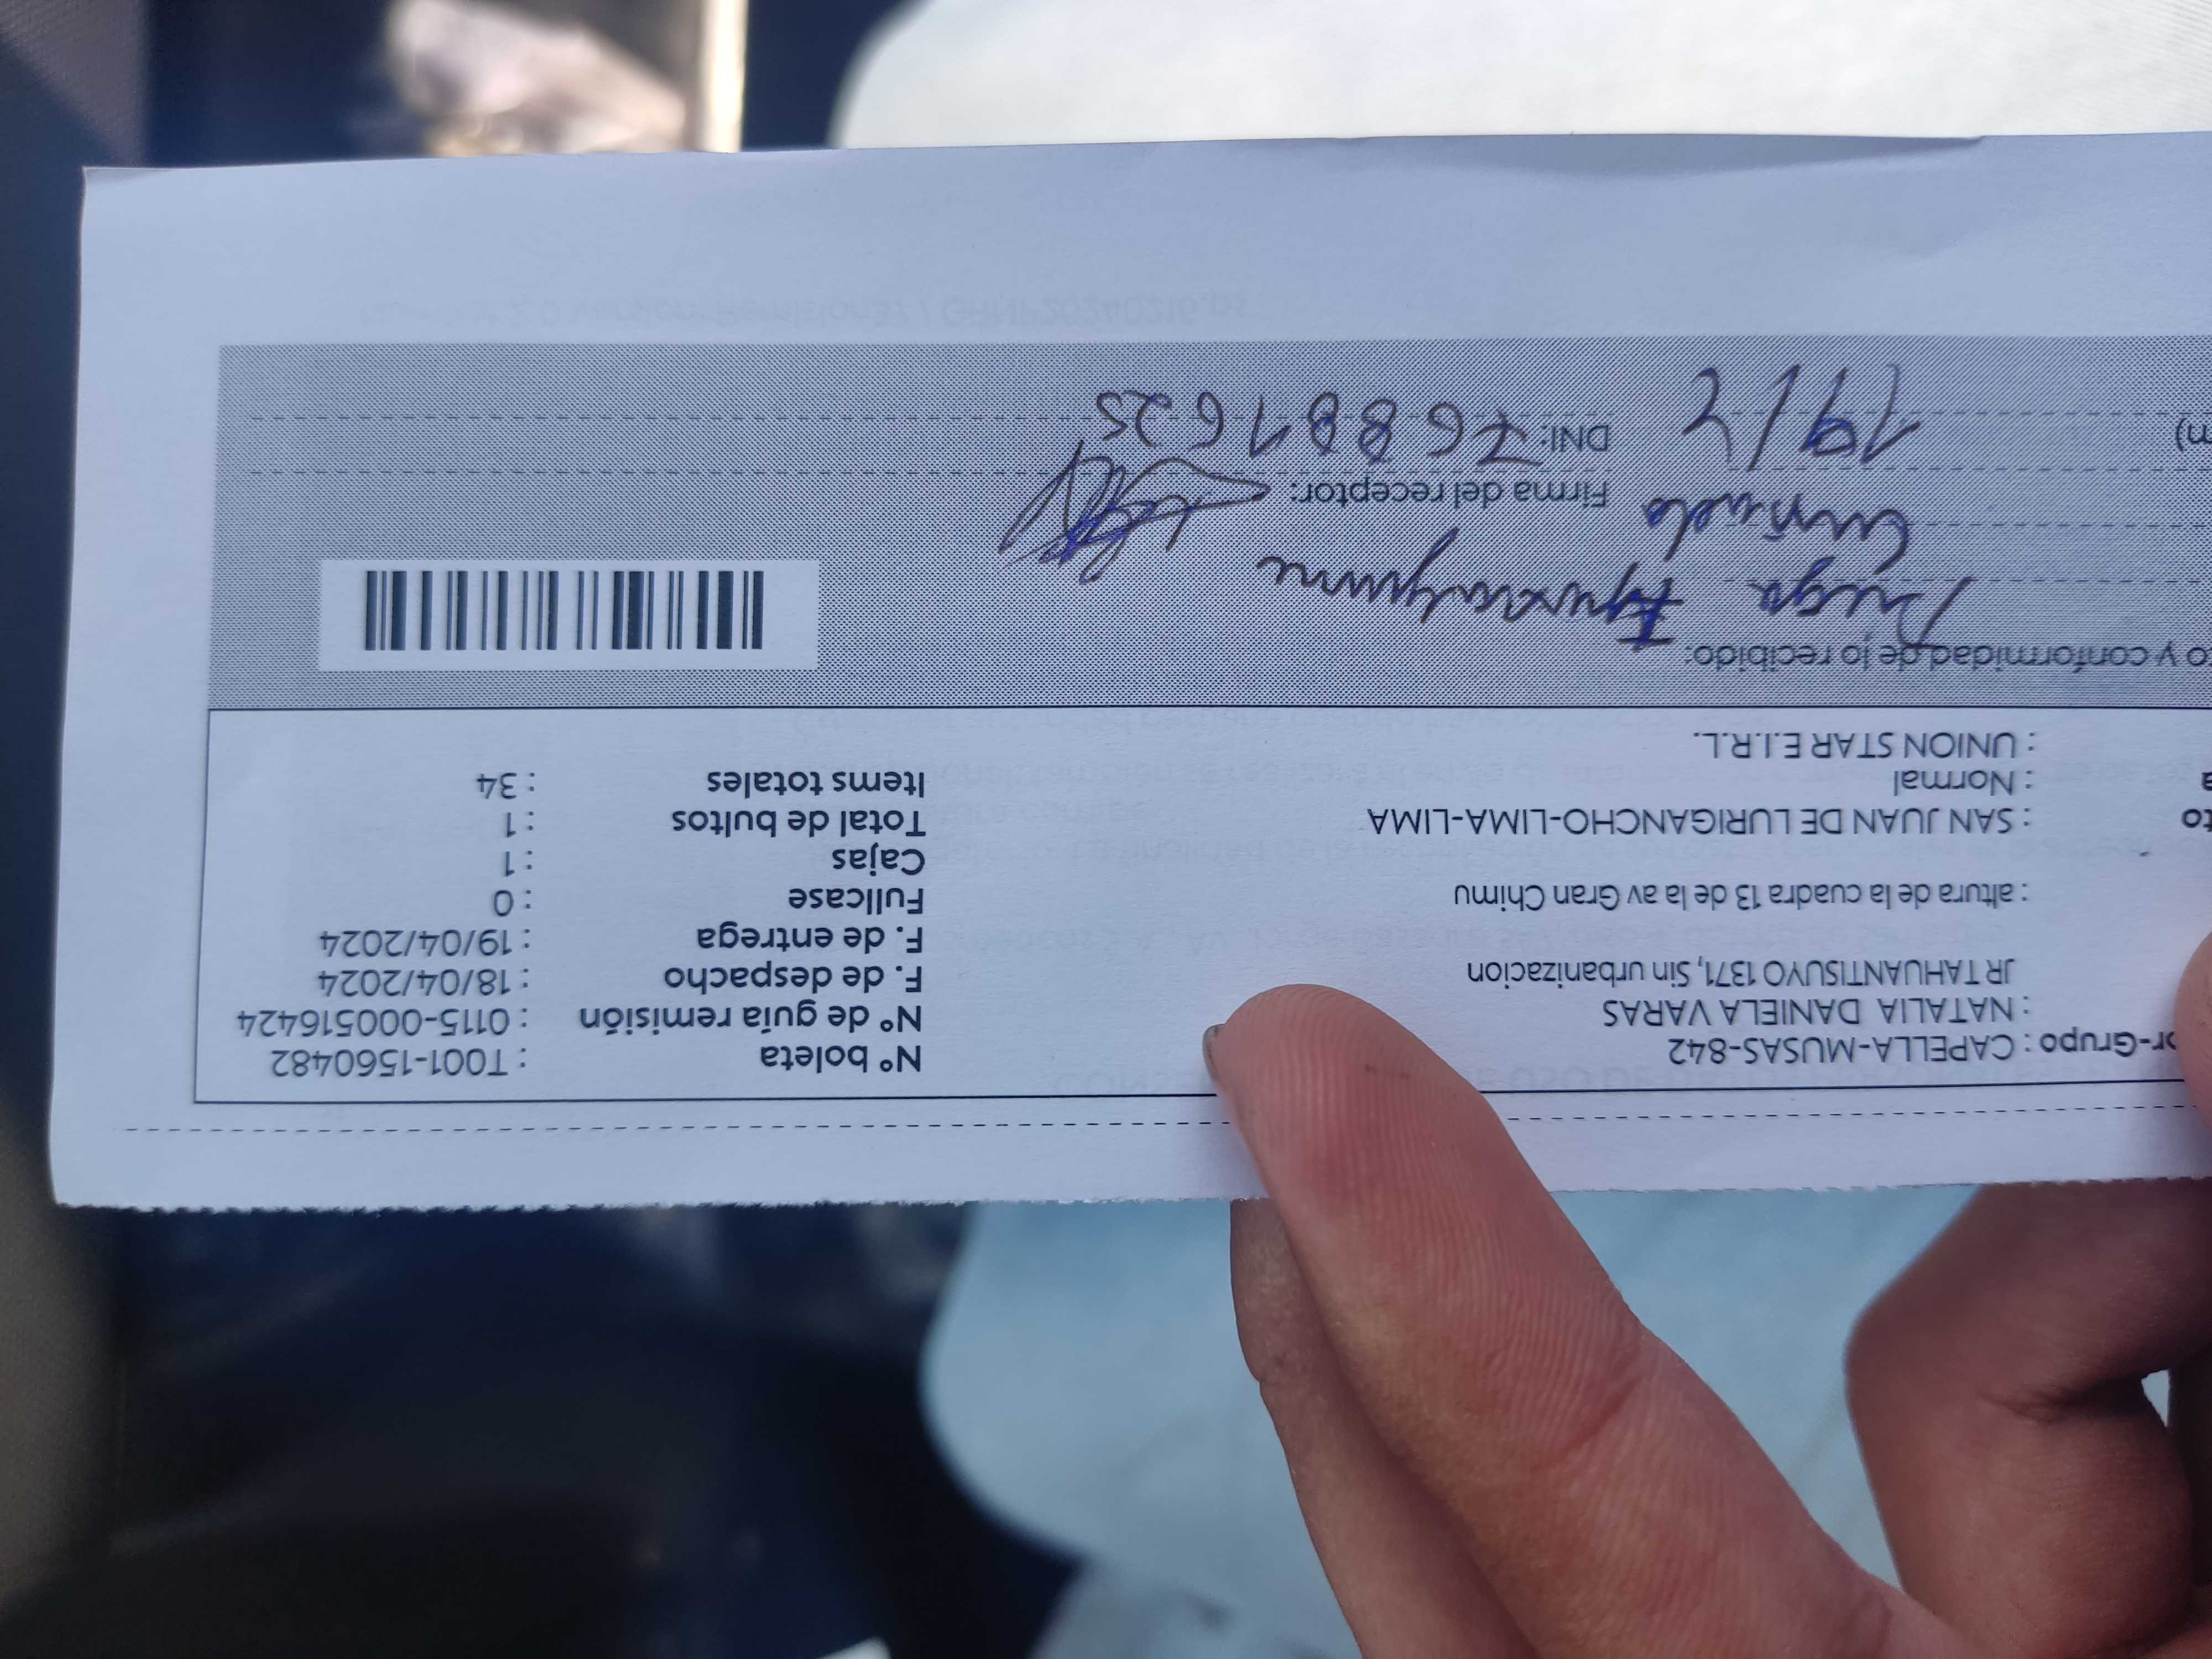 or-Grupo : CAPELLA-MUSAS-842
: NATALIA DANIELA VARAS
JR TAHUANTISUYO 1371, Sin urbanizacion
: altura de la cuadra 13 de la av Gran Chimu
to : SAN JUAN DE LURIGANCHO-LIMA-LIMA
a : Normal
: UNION STAR E.I.R.L.
N° boleta : T001-1560482
N° de guía remisión : 0115-000516424
F. de despacho : 18/04/2024
F. de entrega : 19/04/2024
Fullcase : 0
Cajas : 1
Total de bultos : 1
Items totales : 34
to y conformidad de lo recibido:
Firma del receptor:
m) 19/4 DNI: